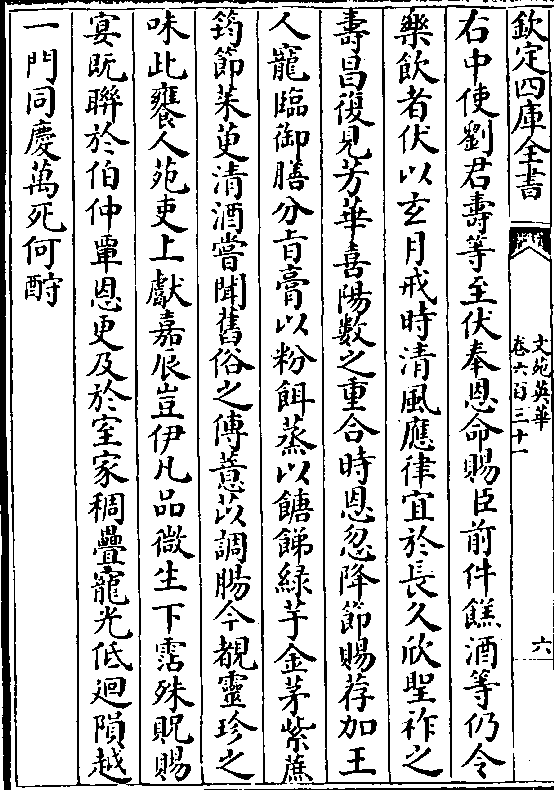 欽定四庫全書
文苑英華
卷六百三十一
六
右中使劉君壽等至伏奉恩命賜臣前件餻酒等仍令
樂飲者伏以玄月戒時清風應律宜於長久欣聖祚之
壽昌復見芳華喜陽數之重合時恩忽降節賜荐加王
人寵臨御膳分旨膏以粉餌蒸以餹餳緑芋金茅紫蔗
筠節茱萸清酒嘗聞舊俗之傳薏苡調腸今覩靈珍之
味此饔人苑吏上獻嘉辰豈伊凡品微生下霑殊貺賜
宴既聯於伯仲覃恩更及於室家稠疊寵光低迴隕越
一門同慶萬死何酧